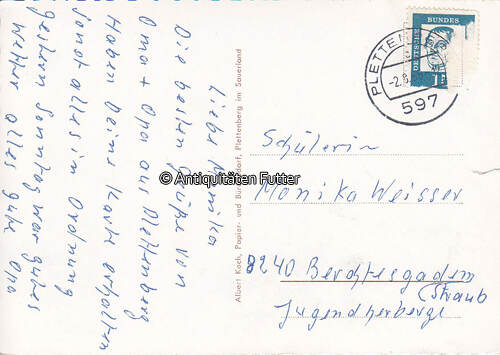 Liebe Monika
Die besten Grüße von
Oma + Opa aus Plettenberg
Haben Deine Karte erhalten
Sonst alles in Ordnung
gestern Sonntag war gutes
Wetter alles gute Opa
Albert Koch, Papier- und Bürobedarf, Plettenberg im Sauerland
© Antiquitäten Futter
DEUTSCHE BUNDES
PLETTEN
-2.8.
597
Schülerin
Monika Weisser
8240 Berchtesgadem
(Straub
Jugendherberge